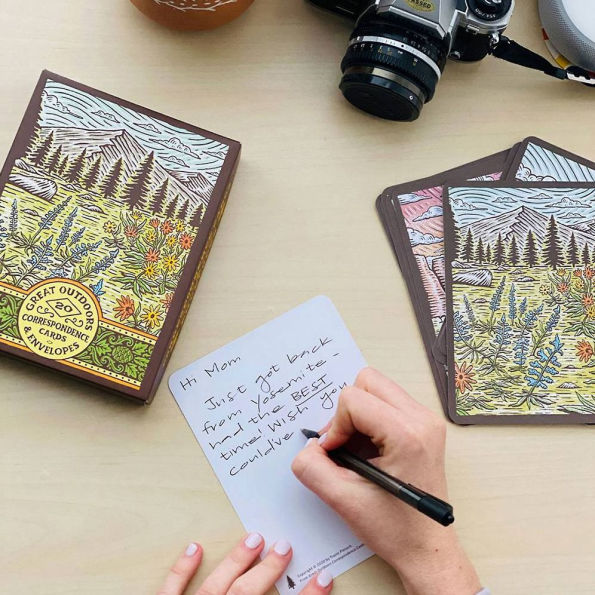 GREAT OUTDOORS
20
CORRESPONDENCE
CARDS
& ENVELOPES
Hi Mom
Just got back
from Yosemite -
had the BEST
time! Wish you
could've